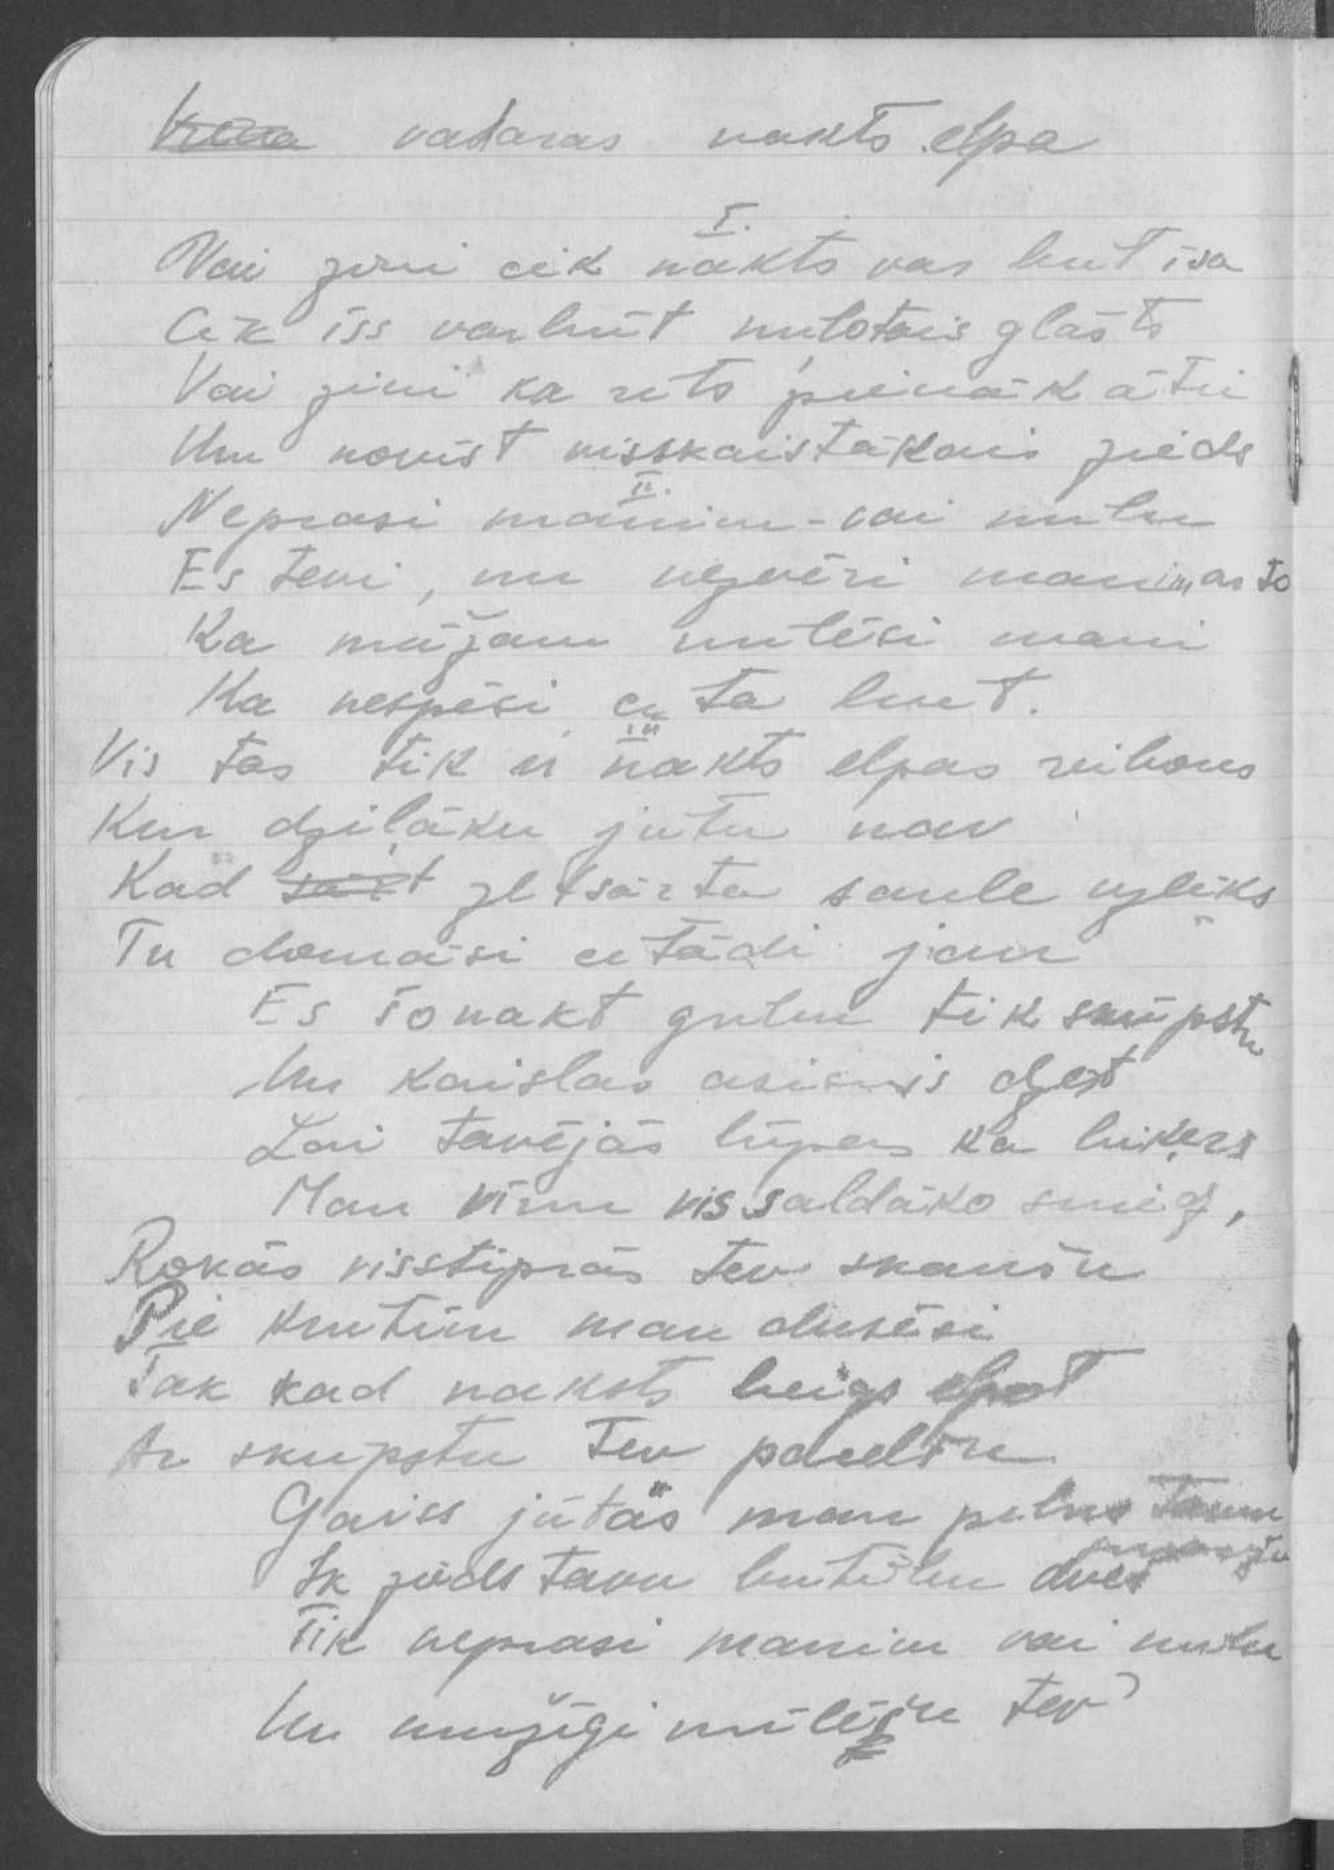 vasaras nakts elpa
I.
Vai zini cik nakts var but īsa
Cik īss varbūt mīlotais glāsts
Vai zini ka rīts pienāk ātri
Un novīst visskaistākais zieds
II.
Neprasi manim - vai mīlu
Es tevi, un nezvēri manim ar to
Ka mūžam mīlēsi mani
Ka nespēsi citā but.
III
Vis tas tik ir nakts elpas reibons
Kur dziļāku jūtu nav
Kad zeltsārta saule uzlēks
Tu domāsi citādi jau
Es šonakt gribu tik skūpstu
Un kaislas asinis dzert
Lai tavējās lūpas kā biķeris
Man vīnu vissaldāko sniedz,
Rokās visstiprās tev skaušu
Pie krutīm man dusēsi
Tak kad nakts beigs elpot
Ar skupstu tev pavēlēšu
Gaiss jūtās man pilns
Ik zieds tavu burtību dveš
Tik neprasi manim vai mīlu
Un mužīgi mīlēšu tev